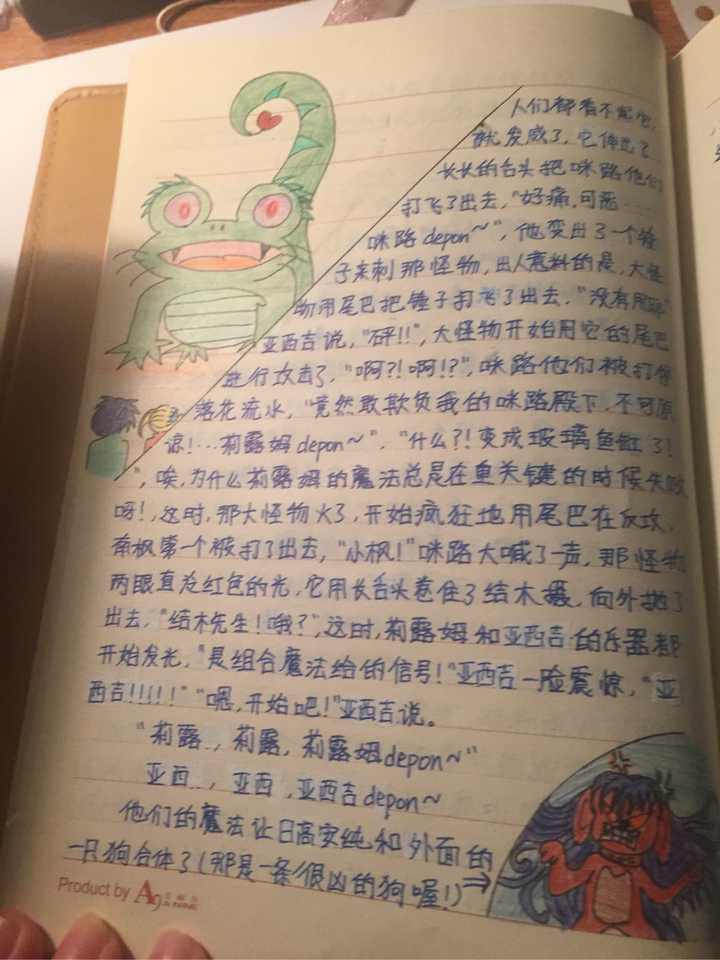 人们都看不起它,
就发威了,它伸出了
长长的舌头把咪路他们
打飞了出去,"好痛,可恶……
咪路depon~",他变出了一个锤
子来刺那怪物,出人意料的是,大怪
物用尾巴把锤子打飞了出去,"没有用的"
亚西吉说,"砰!!",大怪物开始用它的尾巴
进行攻击了,"啊?!啊!?",咪路他们被打得
落花流水,"竟然敢欺负我的咪路殿下,不可原
谅!…莉露姆depon~","什么?!变成玻璃鱼缸了!
",唉,为什么莉露姆的魔法总是在重关键的时候失败
呀!,这时,那大怪物火了,开始疯狂地用尾巴在反攻,
南枫第一个被打了出去,"小枫!"咪路大喊了一声,那怪物
两眼直冒红色的光,它用长舌头卷住了结木摄,向外抛了
出去,"结木先生!哦?",这时,莉露姆和亚西吉的乐器都
开始发光,"是组合魔法给的信号!"亚西吉一脸震惊,"亚
西吉!!!!!""嗯,开始吧!"亚西吉说。
"莉露..,莉露,莉露姆depon~"
亚西..,亚西,亚西吉depon~
他们的魔法让日高安纯和外面的
一只狗合体了(那是一条很凶的狗喔!)⇒
Product by A9